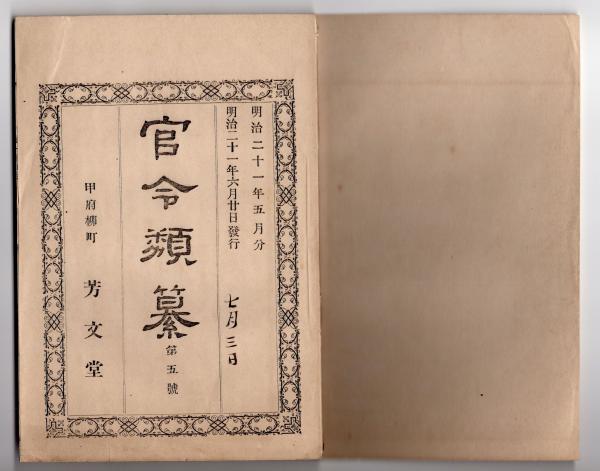 明治二十一年五月分
明治二十一年六月廿日發行
七月三日
官令類纂
第五號
甲府柳町
芳文堂